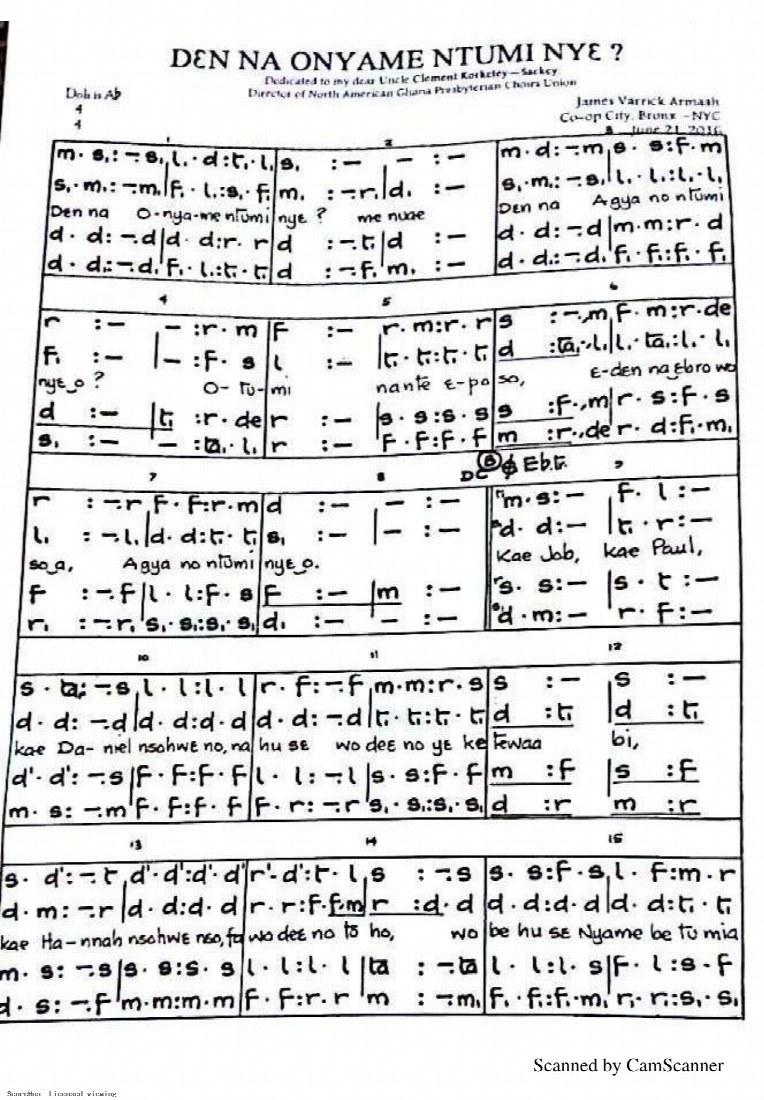 DƐN NA ONYAME NTUMI NYƐ ?
Dedicated to my dear Uncle Clement Korkeley – Sackey
Director of North American Ghana Presbyterian Choirs Union
Doh is Ab
4
4
James Varrick Armaah
Co-op City, Bronx – NYC
June 21, 2016
1 2
m · s,: –:s, l, · d:t, · l, s, :– – :– m · d: –:m s · s:f · m
s, · m,: –:m, f, · l,:s, · f, m, :–:r, d, :– s, · m,: –:s, l, · l,:l, · l,
Den na O-nya-me ntumi nyɛ ? me nuae Den na Agya no ntumi
d · d: –:d d · d:r · r d :–:t, d :– d · d: –:d m · m:r · d
d · d,:–:d, f, · l,:t, · t, d :–:f, m, :– d · d,:–:d, f, · f,:f, · f,
4 5 6
r :– – :r · m f :– r · m:r · r s :–,m f · m:r · de
f, :– – :f · s l :– t, · t,:t, · t, d :ta, · l, l, · ta,:l, · l,
nyɛ o ? O- tu- mi nante ɛ-po so, ɛ-den na ebro wo
d :– t, :r · de r :– s · s:s · s s :f · ,m r · s:f · s
s, :– – :ta, · l, r :– f · f:f · f m :r · ,de r · d:f, · m,
DC B Eb.t.
7 8 9
r :–:r f · f:r · m d :– – :– m · s:– f · l :–
l, :–:l, d · d:t, · t, s, :– – :– d · d:– t, · r:–
so a, Agya no ntumi nyɛ o. Kae Job, kae Paul,
f :–:f l · l:f · s f :– m :– s · s:– s · t :–
r, :–:r, s, · s,:s, · s, d, :– – :– d · m:– r · f:–
10 11 12
s · ta: –:s l · l:l · l r · f: –:f m · m:r · s s :– s :–
d · d: –:d d · d:d · d d · d: –:d t, · t,:t, · t, d :t, d :t,
kae Da- niel nsohwɛ no, na hu sɛ wo deɛ no yɛ ke tewaa bi,
d' · d': –:s f · f:f · f l · l: –:l s · s:f · f m :f s :f
m · s: –:m f · f:f · f f · r: –:r s, · s,:s, · s, d :r m :r
13 14 15
s · d': –:t d' · d':d' · d' r' · d':t · l s :–:s s · s:f · s l · f:m · r
d · m: –:r d · d:d · d r · r:f · fm r :d · d d · d:d · d d · d:t, · t,
kae Ha-nnah nsohwɛ nso, fa wo deɛ no to ho, wo be hu sɛ Nyame be tu mia
m · s: –:s s · s:s · s l · l:l · l ta :–:ta l · l:l · s f · l:s · f
d · s: –:f m · m:m · m f · f:r · r m :–:m, f, · f,:f, · m, r, · r,:s, · s,
Scanned by CamScanner